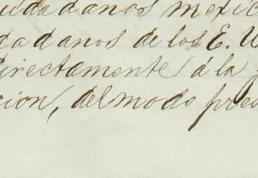 udadanos mexic
dadanos de los E. U
directamente á la
cion, del modo pres